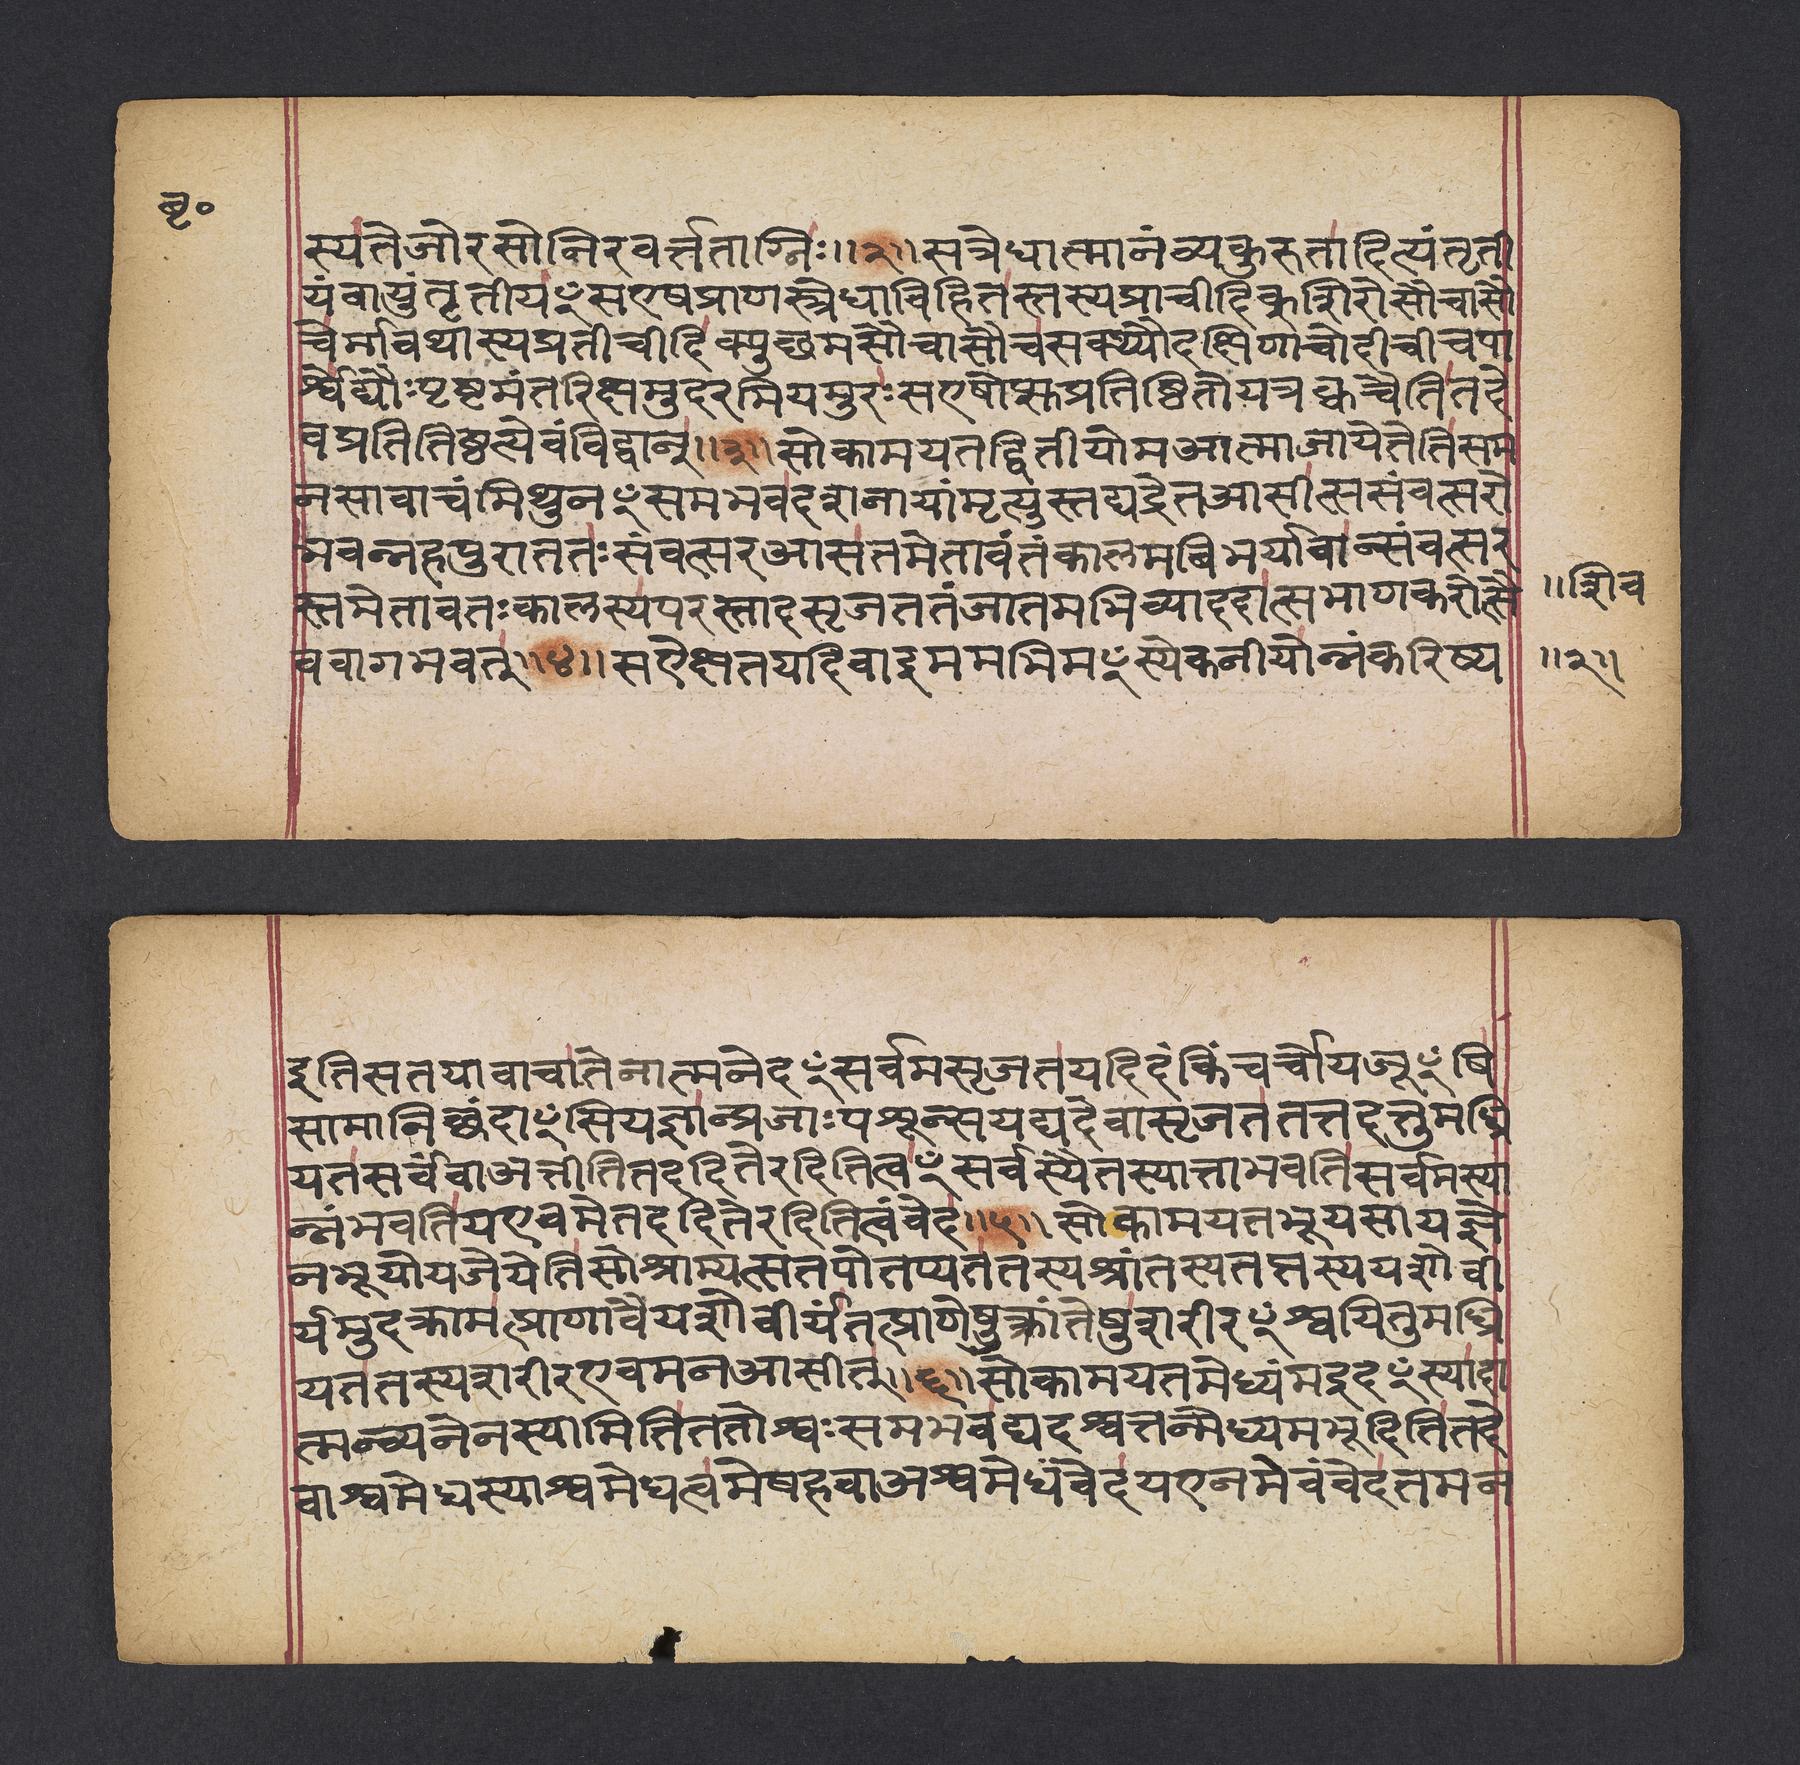 बृ॰
स्यतेजोरसोनिरवर्त्तताग्निः॥२॥सत्रेधात्मानंव्यकुरुतादित्यंतृती
यंवायुंतृतीयꣳसएषप्राणस्त्रेधाविहितस्तस्यप्राचीदिक्शिरोसौचासौ
चेर्मावथास्यप्रतीचीदिक्पुच्छमसौचासौचसक्थ्यौदक्षिणाचोदीचीचपा
र्श्वेद्यौःपृष्टमंतरिक्षमुदरमियमुरःसएषोप्सुप्रतिष्ठितोयत्रक्वचैतितदे
वप्रतितिष्ठत्येवंविद्वान्॥३॥सोकामयतद्वितीयोमआत्माजायेतेतिसम
नसावाचंमिथुनꣳसमभवदशनायांमृत्युस्तद्यद्रेतआसीत्ससंवत्सरो
भवन्नहपुराततःसंवत्सरआसतमेतावंतंकालमबिभर्यावान्संवत्सर
स्तमेतावतःकालस्यपरस्तादसृजततंजातमभिव्याददात्सभाणकरोत्सै
ववागभवत्॥४॥सऐक्षतयदिवाइममभिमꣳस्येकनीयोन्नंकरिष्य
॥शिव
॥२॥
इतिसतयावाचातेनात्मनेदꣳसर्वमसृजतयदिदंकिंचर्चोयजूꣳषि
सामानिछंदाꣳसियज्ञान्प्रजाःपशून्सयद्यदेवासृजततत्तदत्तुमध्रि
यतसर्वंवाअत्तीतितददितेरदितित्वꣳसर्वस्यैतस्यात्ताभवतिसर्वमस्या
न्नंभवतियएवमेतददितेरदितित्वंवेद॥५॥सोकामयतभूयसायज्ञे
नभूयोयजेयेतिसोश्राम्यत्सतपोतप्यततस्यश्रांतस्यतप्तस्ययशोवी
र्यमुदक्रामत्प्राणावैयशोवीर्यंतत्प्राणेषुत्क्रांतेषुशरीरꣳश्वयितुमध्रि
यततस्यशरीरएवमनआसीत्॥६॥सोकामयतमेध्यंमइदꣳस्यादा
त्मन्व्यनेनस्यामितिततोश्वःसमभवद्यदश्वत्तन्मेध्यमभूदितितदे
वाश्वमेधस्याश्वमेधत्वमेषहवाअश्वमेधंवेदयएनमेवंवेदतमन